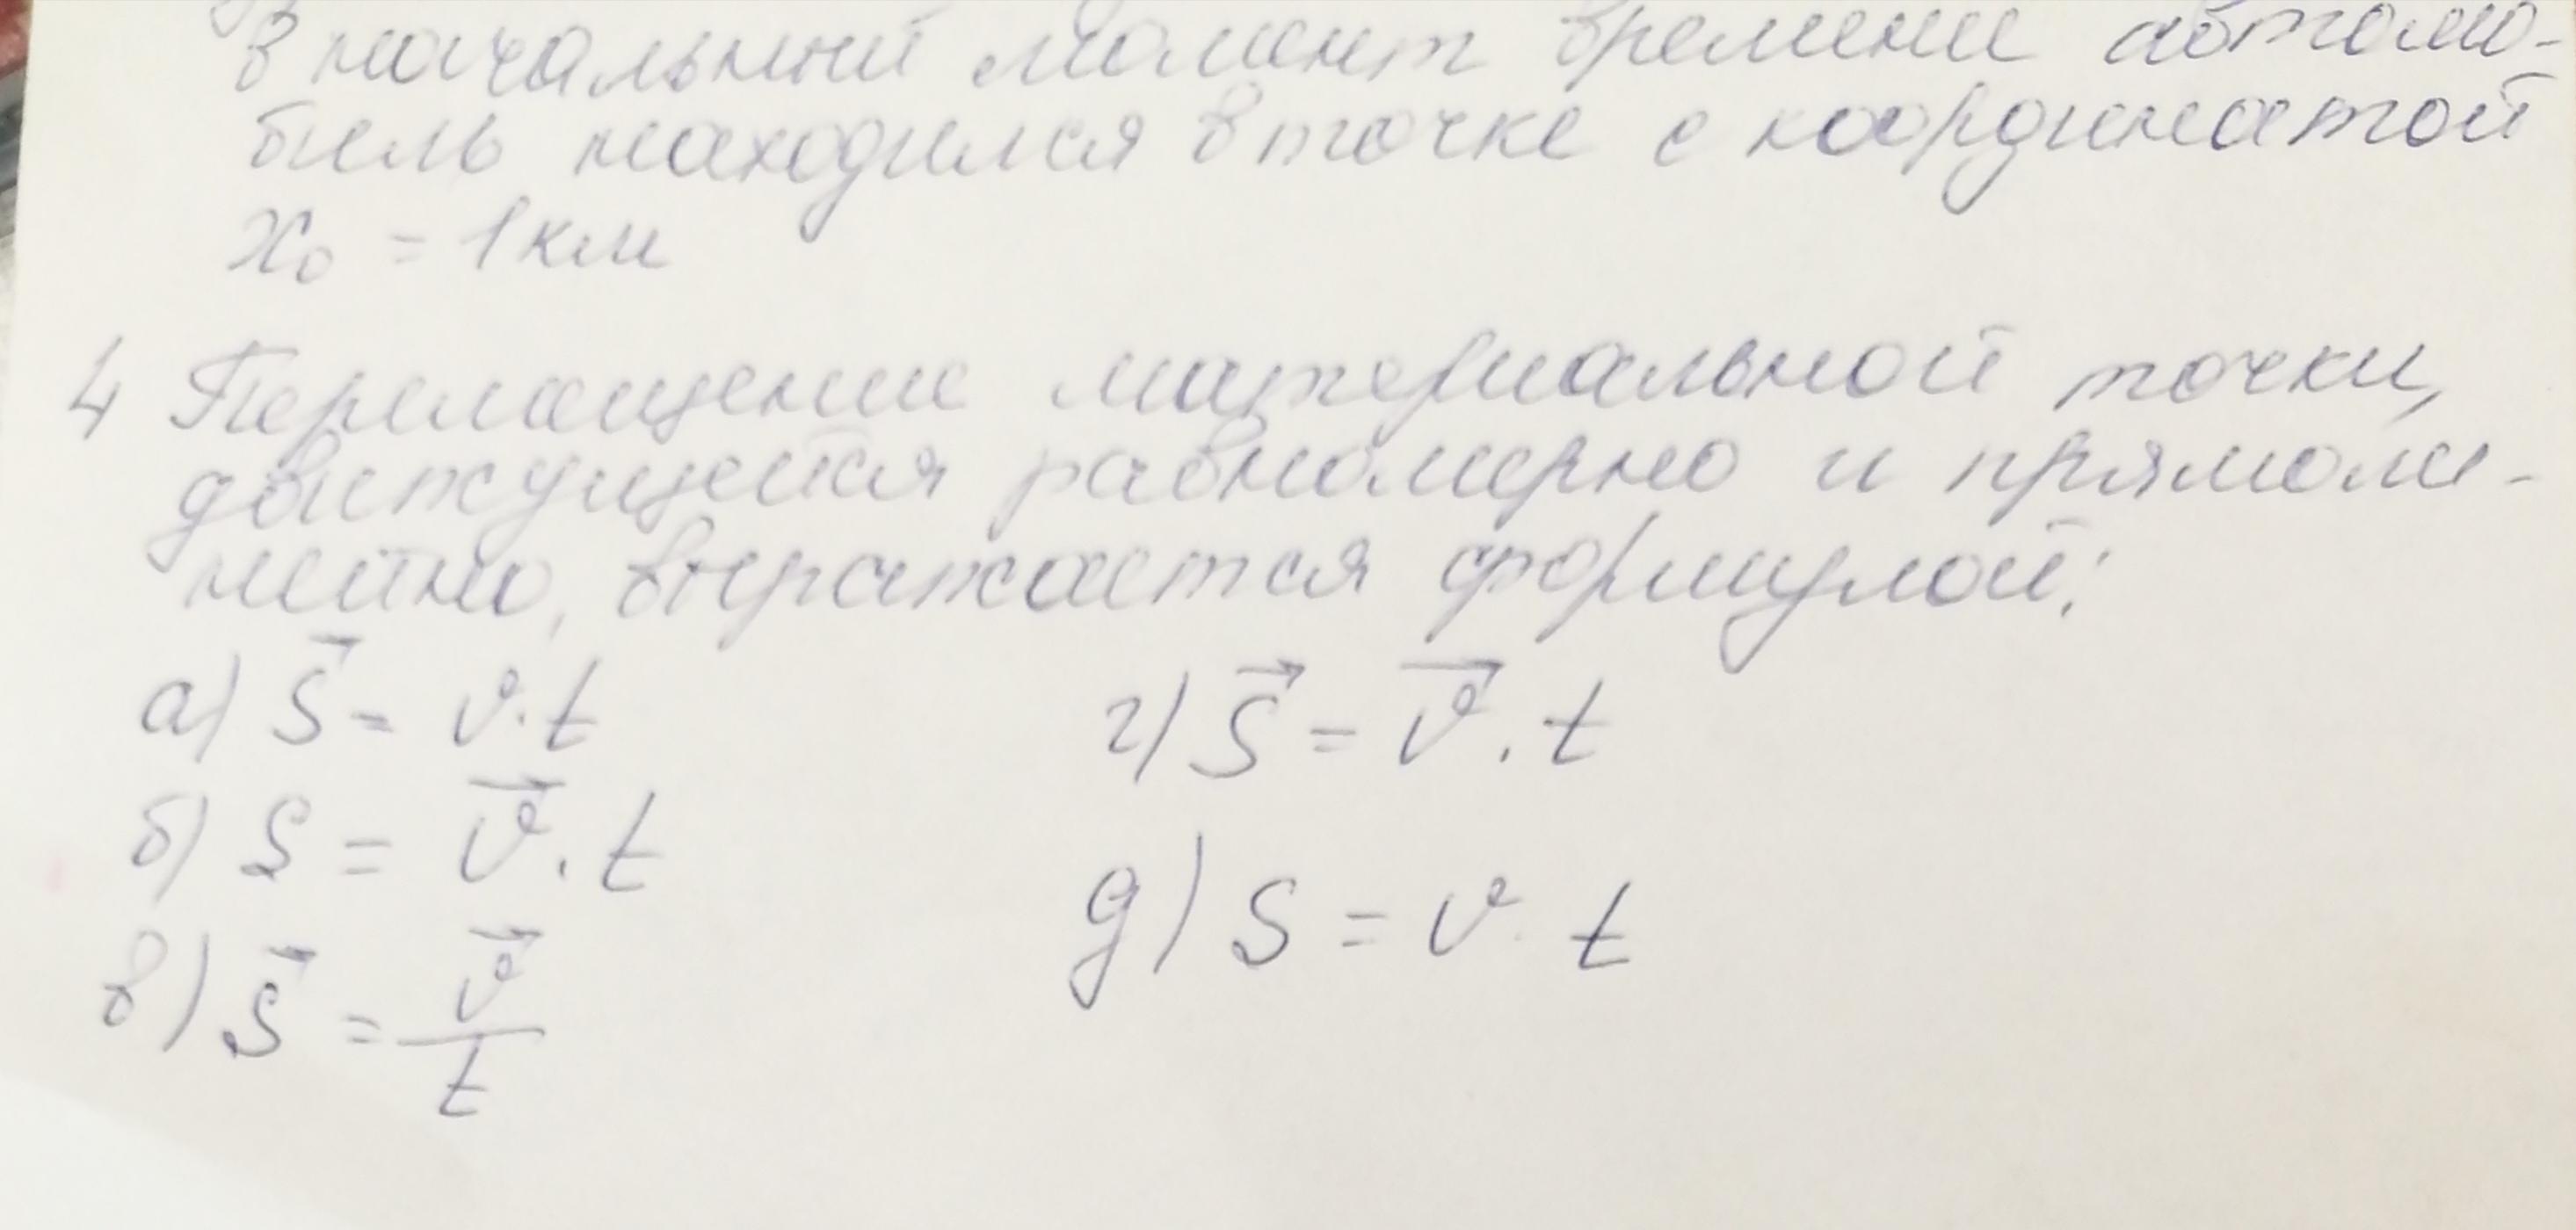 В начальный момент времени автомо-
биль находился в точке с координатой
x₀ = 1 км
4 Перемещение материальной точки,
движущейся равномерно и прямоли-
нейно, выражается формулой:
а) s⃗ = v·t
г) s⃗ = v⃗·t
б) s = v⃗·t
д) s = v·t
в) s⃗ = v⃗/t